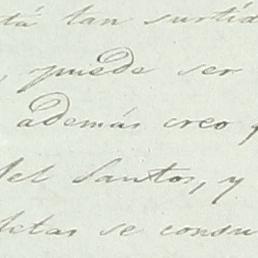 tá tan surtid
, puede ser
además creo q
del Santos, y
letas se consu